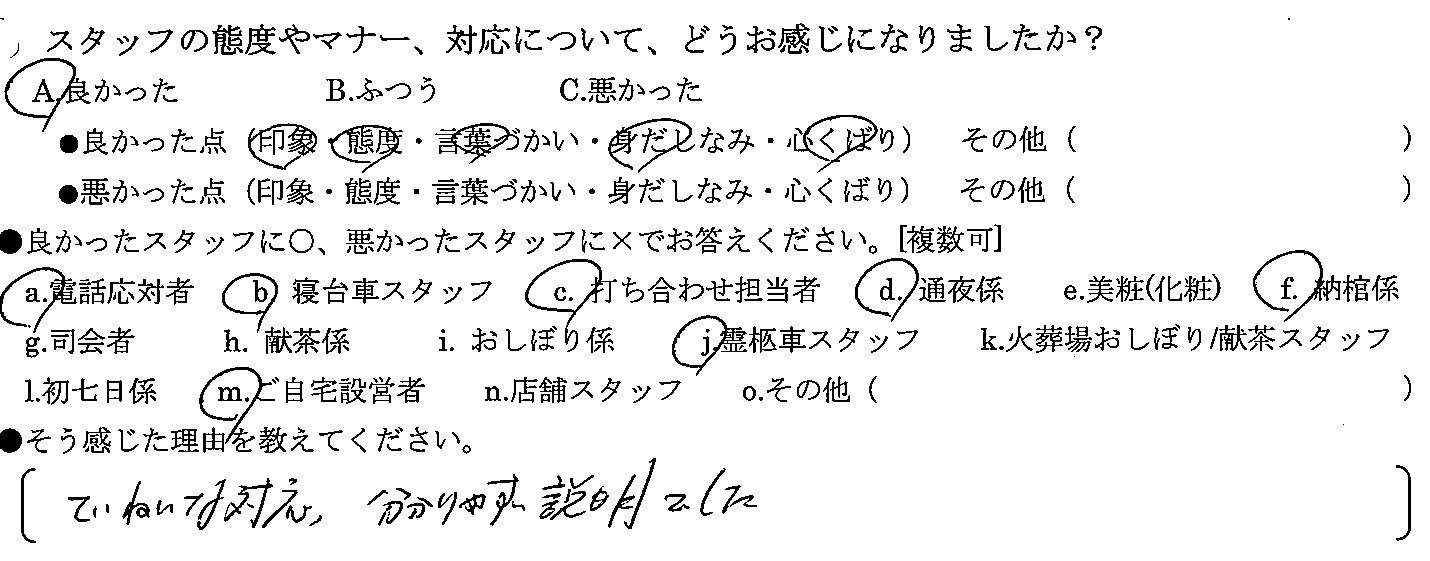 スタッフの態度やマナー、対応について、どうお感じになりましたか？
A.良かった　B.ふつう　C.悪かった
●良かった点（印象・態度・言葉づかい・身だしなみ・心くばり）　その他（　）
●悪かった点（印象・態度・言葉づかい・身だしなみ・心くばり）　その他（　）
●良かったスタッフに〇、悪かったスタッフに×でお答えください。[複数可]
a.電話応対者　b. 寝台車スタッフ　c. 打ち合わせ担当者　d. 通夜係　e.美粧(化粧)　f. 納棺係
g.司会者　h. 献茶係　i. おしぼり係　j.霊柩車スタッフ　k.火葬場おしぼり/献茶スタッフ
l.初七日係　m.ご自宅設営者　n.店舗スタッフ　o.その他（　）
●そう感じた理由を教えてください。
ていねいな対応、分かりやすい説明でした